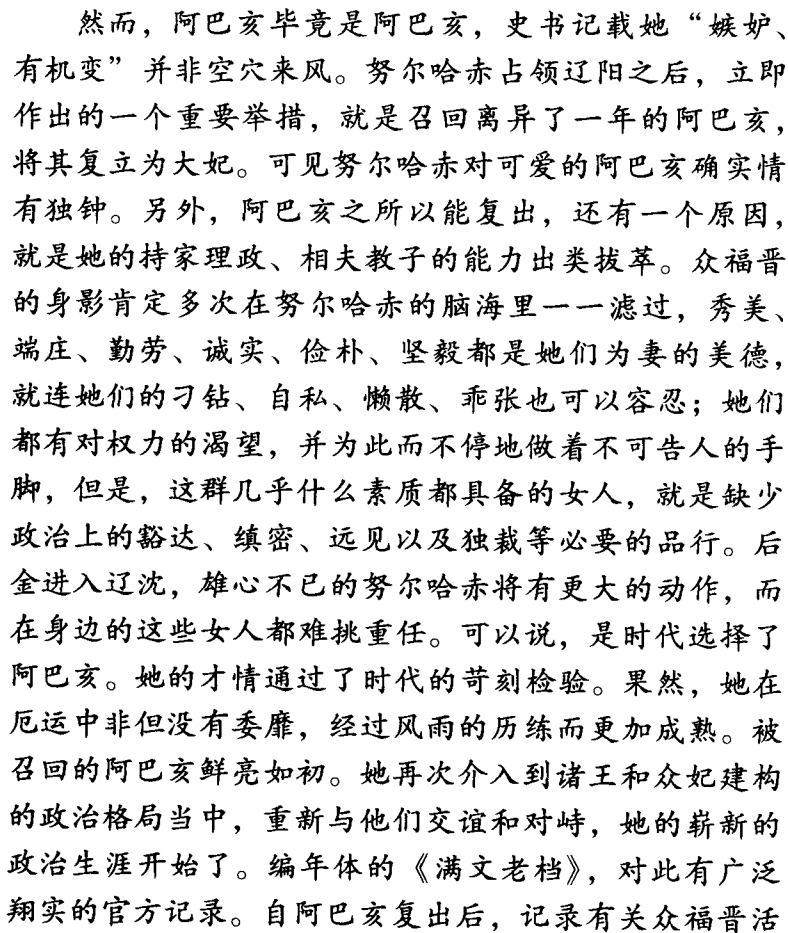 然而，阿巴亥毕竟是阿巴亥，史书记载她“嫉妒、
有机变”并非空穴来风。努尔哈赤占领辽阳之后，立即
作出的一个重要举措，就是召回离异了一年的阿巴亥，
将其复立为大妃。可见努尔哈赤对可爱的阿巴亥确实情
有独钟。另外，阿巴亥之所以能复出，还有一个原因，
就是她的持家理政、相夫教子的能力出类拔萃。众福晋
的身影肯定多次在努尔哈赤的脑海里一一滤过，秀美、
端庄、勤劳、诚实、俭朴、坚毅都是她们为妻的美德，
就连她们的刁钻、自私、懒散、乖张也可以容忍；她们
都有对权力的渴望，并为此而不停地做着不可告人的手
脚，但是，这群几乎什么素质都具备的女人，就是缺少
政治上的豁达、缜密、远见以及独裁等必要的品行。后
金进入辽沈，雄心不已的努尔哈赤将有更大的动作，而
在身边的这些女人都难挑重任。可以说，是时代选择了
阿巴亥。她的才情通过了时代的苛刻检验。果然，她在
厄运中非但没有委靡，经过风雨的历练而更加成熟。被
召回的阿巴亥鲜亮如初。她再次介入到诸王和众妃建构
的政治格局当中，重新与他们交谊和对峙，她的崭新的
政治生涯开始了。编年体的《满文老档》，对此有广泛
翔实的官方记录。自阿巴亥复出后，记录有关众福晋活